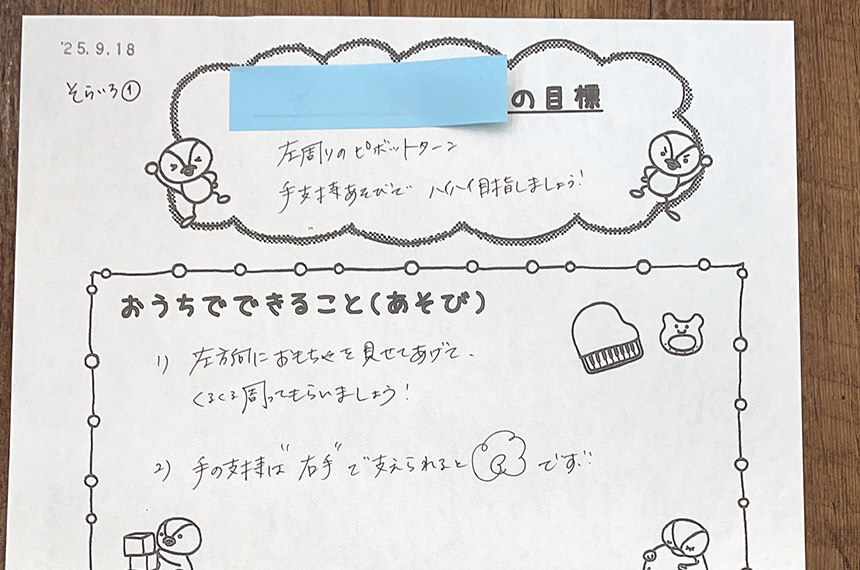 '25.9.18
そらいろ①
の目標
左周りのピボットターン
手支持あそびで ハイハイ目指しましょう!
おうちでできること(あそび)
1) 左方向におもちゃを見せてあげて、
くるくる周ってもらいましょう!
2) 手の支持は"右手"で支えられると です!!